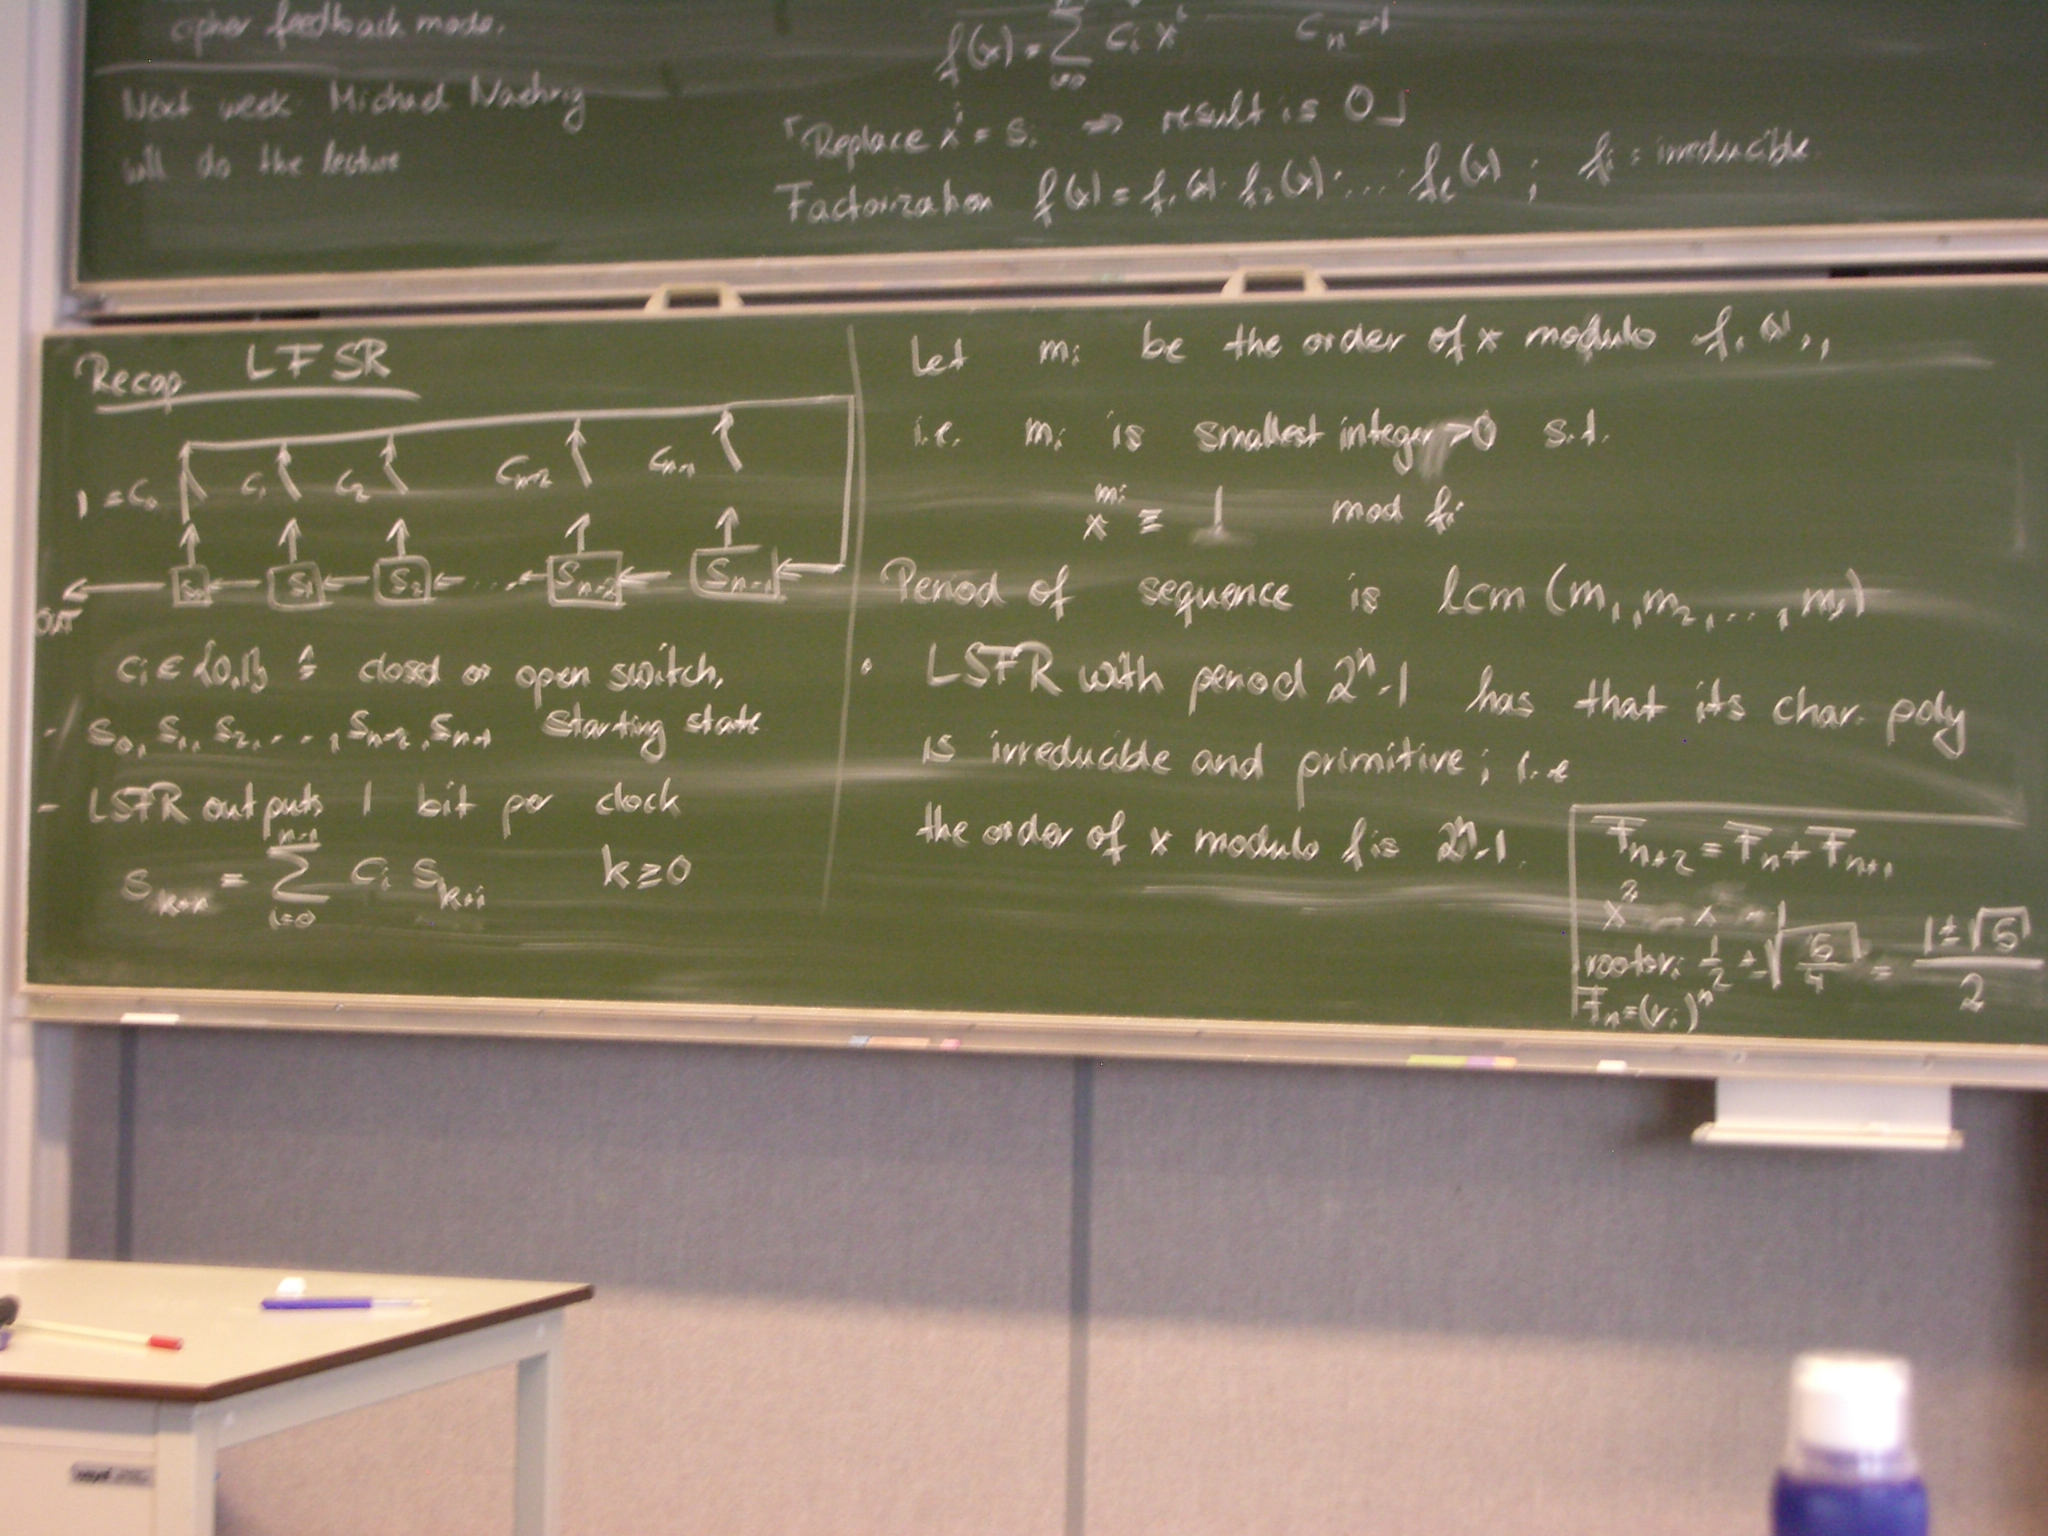 cipher feedback mode.
Next week Michael Naehrig
will do the lecture
f(x) = Σ cᵢ xⁱ    cₙ = 1
Replace xⁱ = sᵢ ⇒ result is 0
Factorization f(x) = f₁(x)· f₂(x)· ... · f_c(x) ; fᵢ : irreducible
Recap LFSR
1 = c₀ c₁ c₂ cₙ₋₂ cₙ₋₁
s₀ ← s₁ ← s₂ ← ... ← sₙ₋₂ ← sₙ₋₁ ←
OUT
cᵢ ∈ {0,1} ≙ closed or open switch.
- s₀, s₁, s₂, ..., sₙ₋₂, sₙ₋₁ starting state
- LSFR outputs 1 bit per clock
sₖ₊ₙ = Σᵢ₌₀ⁿ⁻¹ cᵢ sₖ₊ᵢ    k ≥ 0
Let mᵢ be the order of x modulo fᵢ(x),
i.e. mᵢ is smallest integer >0 s.t.
x^mᵢ ≡ 1 mod fᵢ
Period of sequence is lcm (m₁, m₂, ..., )
• LSFR with period 2ⁿ-1 has that its char. poly
is irreducible and primitive; i.e
the order of x modulo f is 2ⁿ-1.
Fₙ₊₂ = Fₙ + Fₙ₊₁
x² - x - 1
roots rᵢ: 1/2 ± √(5/4) = (1±√5)/2
Fₙ = (rᵢ)ⁿ